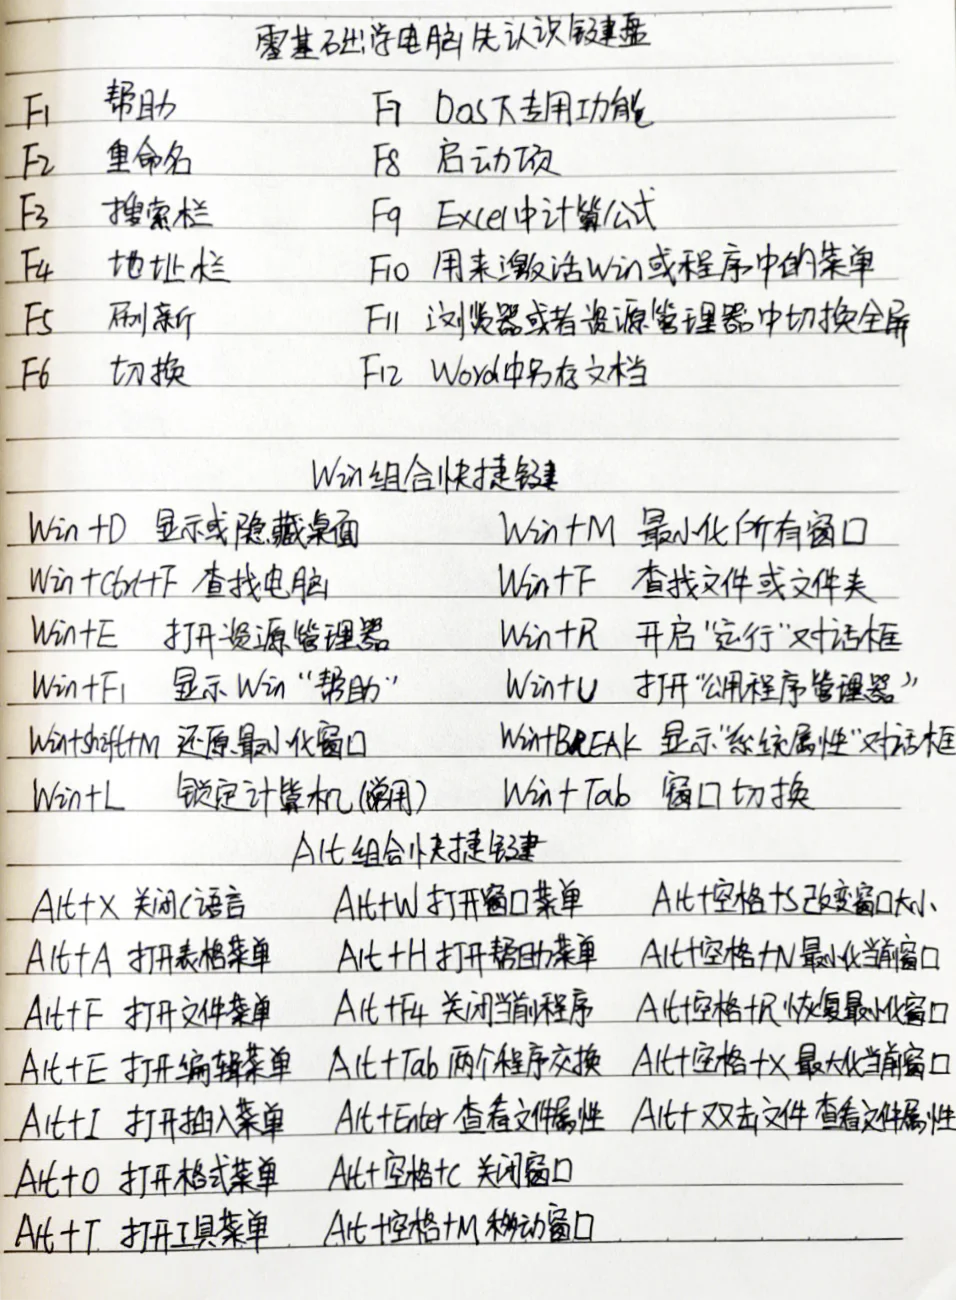 零基础学电脑先认识键盘
F1 帮助 F7 Dos下专用功能
F2 重命名 F8 启动项
F3 搜索栏 F9 Excel中计算公式
F4 地址栏 F10 用来激活Win或程序中的菜单
F5 刷新 F11 浏览器或者资源管理器中切换全屏
F6 切换 F12 Word中另存文档
Win组合快捷键
Win+D 显示或隐藏桌面 Win+M 最小化所有窗口
Win+Ctrl+F 查找电脑 Win+F 查找文件或文件夹
Win+E 打开资源管理器 Win+R 开启"运行"对话框
Win+F1 显示Win"帮助" Win+U 打开"公用程序管理器"
Win+shift+M 还原最小化窗口 Win+BREAK 显示"系统属性"对话框
Win+L 锁定计算机(常用) Win+Tab 窗口切换
Alt组合快捷键
Alt+X 关闭C语言 Alt+W 打开窗口菜单 Alt+空格+S 改变窗口大小
Alt+A 打开表格菜单 Alt+H 打开帮助菜单 Alt+空格+N 最小化当前窗口
Alt+F 打开文件菜单 Alt+F4 关闭当前程序 Alt+空格+R 恢复最小化窗口
Alt+E 打开编辑菜单 Alt+Tab 两个程序交换 Alt+空格+X 最大化当前窗口
Alt+I 打开插入菜单 Alt+Enter 查看文件属性 Alt+双击文件 查看文件属性
Alt+O 打开格式菜单 Alt+空格+C 关闭窗口
Alt+T 打开工具菜单 Alt+空格+M 移动窗口